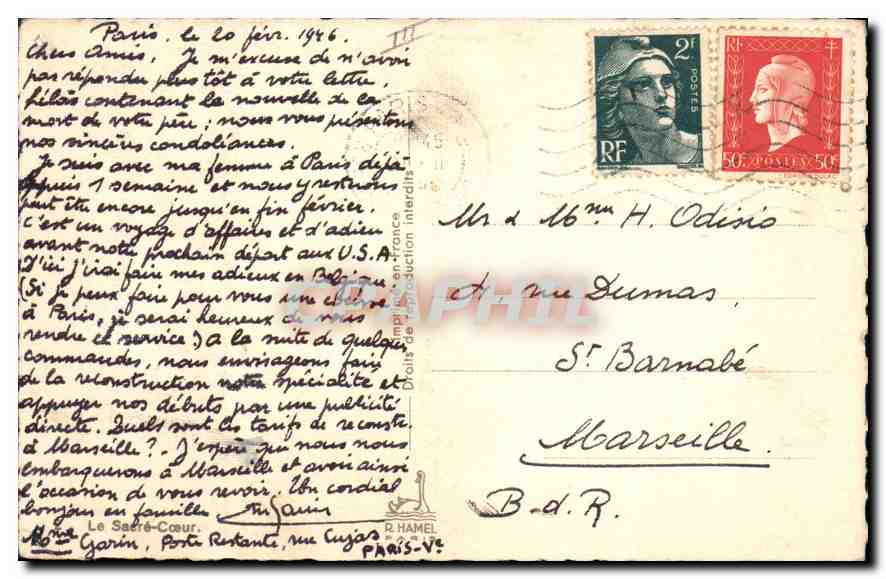 Paris, le 20 févr. 1946.
III
Chers Amis, Je m'excuse de n'avoir
pas répondu plus tôt à votre lettre,
hélas contenant la nouvelle de la
mort de votre père; nous vous présentons
nos sincères condoléances.
Je suis avec ma femme à Paris déjà
depuis 1 semaine et nous y resterons
peut être encore jusqu'en fin février.
C'est un voyage d'affaires et d'adieu
avant notre prochain départ aux U.S.A.
D'ici j'irai faire mes adieux en Belgique.
(Si je peux faire pour vous une course
à Paris, je serai heureux de vous
rendre ce service.) A la suite de quelques
commandes, nous envisageons faire
de la reconstruction notre spécialité et
appuyer nos débuts par une publicité
directe. Quels sont les tarifs de reconstr.
à Marseille? - J'espère que nous nous
embarquerons à Marseille et avoir ainsi
l'occasion de vous revoir. Un cordial
bonjour en famille
Le Sacré-Cœur.
Garin, Poste Restante, rue Cujas
PARIS-Ve
Imprimé en France
Droits de reproduction interdits
R. HAMEL
PARIS
CPAPHIL
2F
POSTES
RF
RF
50c POSTES 50c
Mr & Mme H. Odisio
rue Dumas,
St Barnabé
Marseille.
B-d-R.